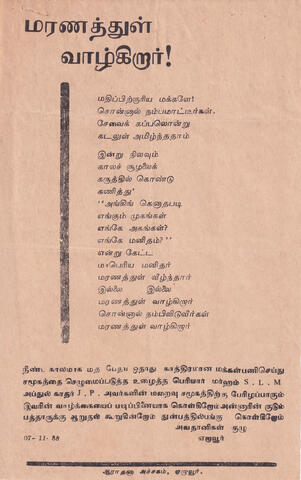 மரணத்துள்
வாழ்கிறார்!
மதிப்பிற்குரிய மக்களே!
சொன்னால் நம்பமாட்டீர்கள்.
சேவைக் கப்பலொன்று
கடலுள் அமிழ்ந்ததாம்
இன்று நிலவும்
காலச் சூழலைக்
கருத்தில் கொண்டு
கணித்து'
"அங்கிங் கெனாதபடி
எங்கும் முகங்கள்
எங்கே அகங்கள்?
எங்கே மனிதம்?''
என்று கேட்ட
மாபெரிய மனிதர்
மரணத்துள் வீழ்ந்தார்
இல்லை இல்லை
மரணத்துள் வாழ்கிறார்
சொன்னால் நம்பிவிடுவீர்கள்
மரணத்துள் வாழ்கிறார்
நீண்ட காலமாக மத பேதம் ஏதாது காத்திரமான மக்கள்பணிசெய்து
சமூகத்தை செழுமைப்படுத்த உழைத்த பெரியார் மர்ஹூம் S. L. M
அப்துல் காதர் J. P. அவர்களின் மறைவு சமூகத்திற்கு பேரிழப்பாகும்
இவரின் வாழ்க்கையைப் படிப்பினையாக கொள்கிறோம் அன்னாரின் குடும்
பத்தாருக்கு ஆறுதல் கூறினோம் துன்பத்தில்பங்கு கொள்கிறோம்
அவதானிகள் குழு
07-11-88 ஏறாவூர்
ஆராதனா அச்சகம், ஏறாவூர்.